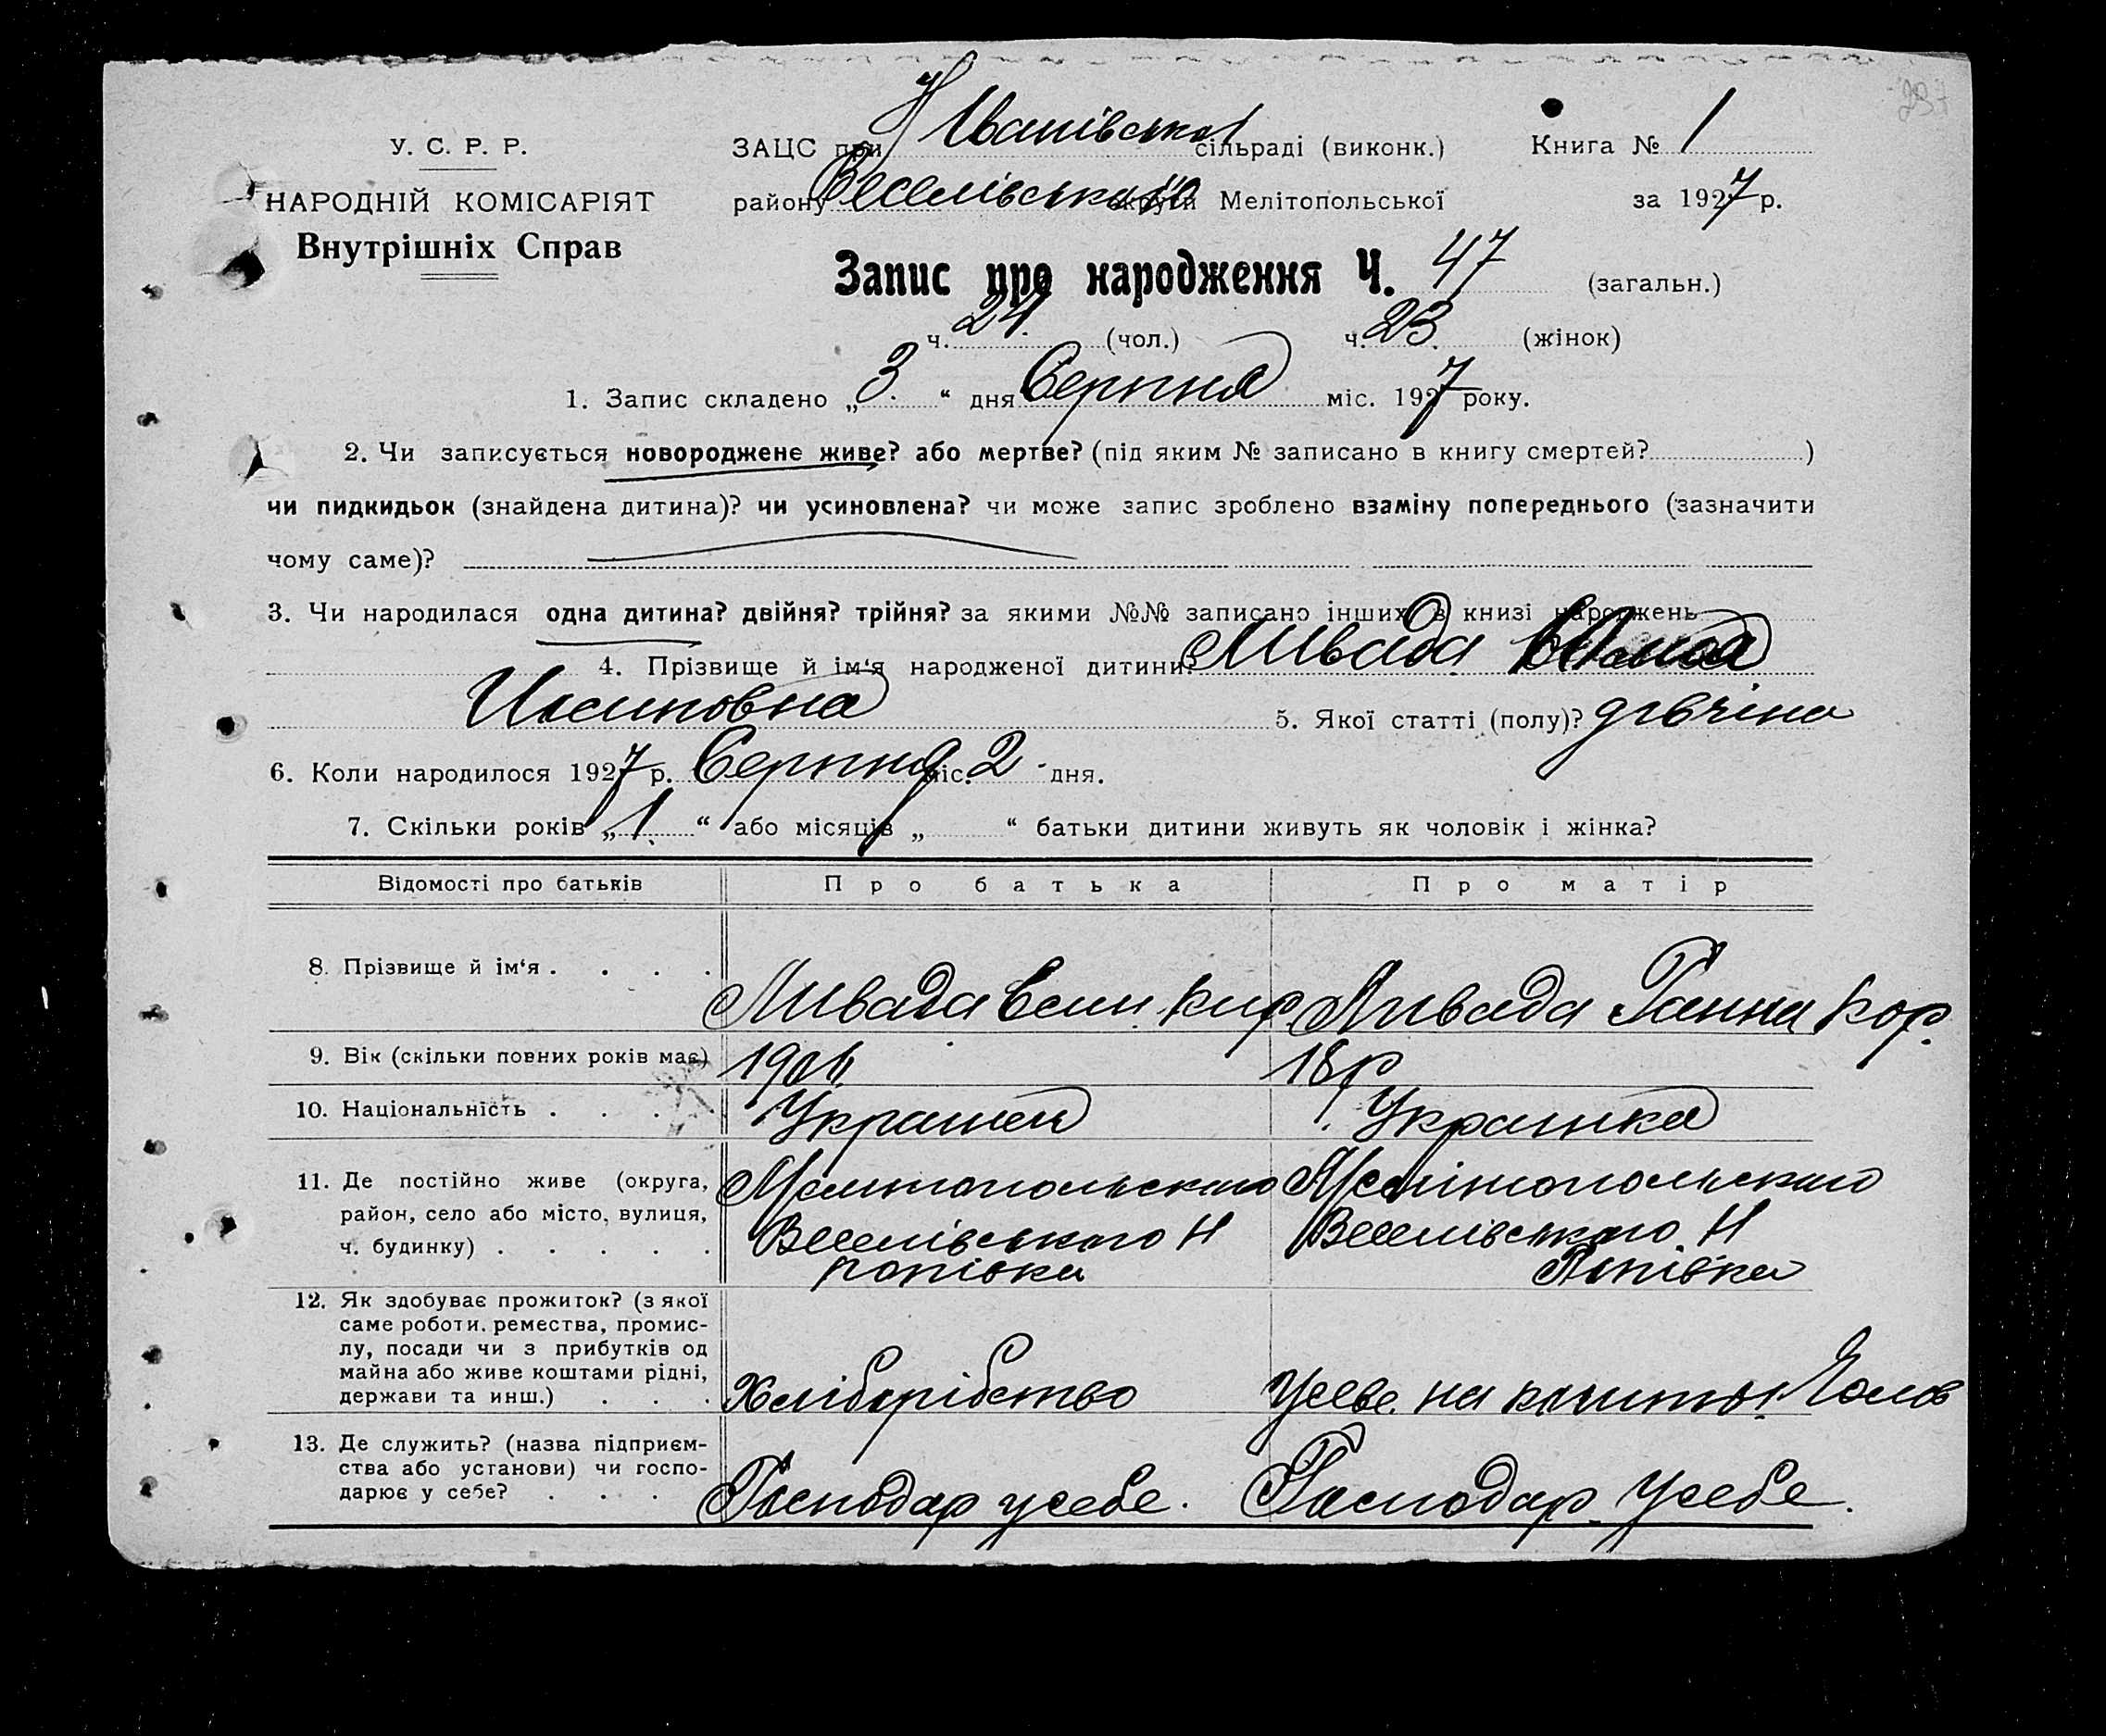 237
У. С. Р. Р.
НАРОДНІЙ КОМІСАРІЯТ
Внутрішніх Справ
ЗАЦС при Н Іванівської сільраді (виконк.) Книга № 1
району Веселівський округи Мелітопольської за 1927 р.
Запис про народження Ч. 47 (загальн.)
ч. 24. (чол.) ч. 23. (жінок)
1. Запис складено „ 3. “ дня Серпня міс. 1927 року.
2. Чи записується новороджене живе? або мертве? (під яким № записано в книгу смертей? )
чи пидкидьок (знайдена дитина)? чи усиновлена? чи може запис зроблено взаміну попереднього (зазначити
чому саме)?
3. Чи народилася одна дитина? двійня? трійня? за якими №№ записано інших в книзі народжень
4. Прізвище й ім‘я народженої дитини? Ливада
5. Якої статті (полу)? дівчіна
6. Коли народилося 1927 р. Серпня міс. 2 дня.
7. Скільки років „ 1. “ або місяців „ “ батьки дитини живуть як чоловік і жінка?
Відомості про батьків Про батька Про матір
8. Прізвище й ім‘я . . . . Ливада Есип. Кир. Ливада Ганна Кор.
9. Вік (скільки повних років має) 18р
10. Національність . . . . Украинец Украинка
11. Де постійно живе (округа, Мелитопольского Мелітопольского
район, село або місто, вулиця, Веселівського Н Веселівського Н
ч. будинку) . . . . . попівка Попівка
12. Як здобуває прожиток? (з якої
саме роботи, ремества, промис-
лу, посади чи з прибутків од
майна або живе коштами рідні,
держави та инш.) . . . Хліборібство на кошты
13. Де служить? (назва підприєм-
ства або установи) чи госпо-
дарює у себе? . . . Господар усебе. Господар. Усебе.